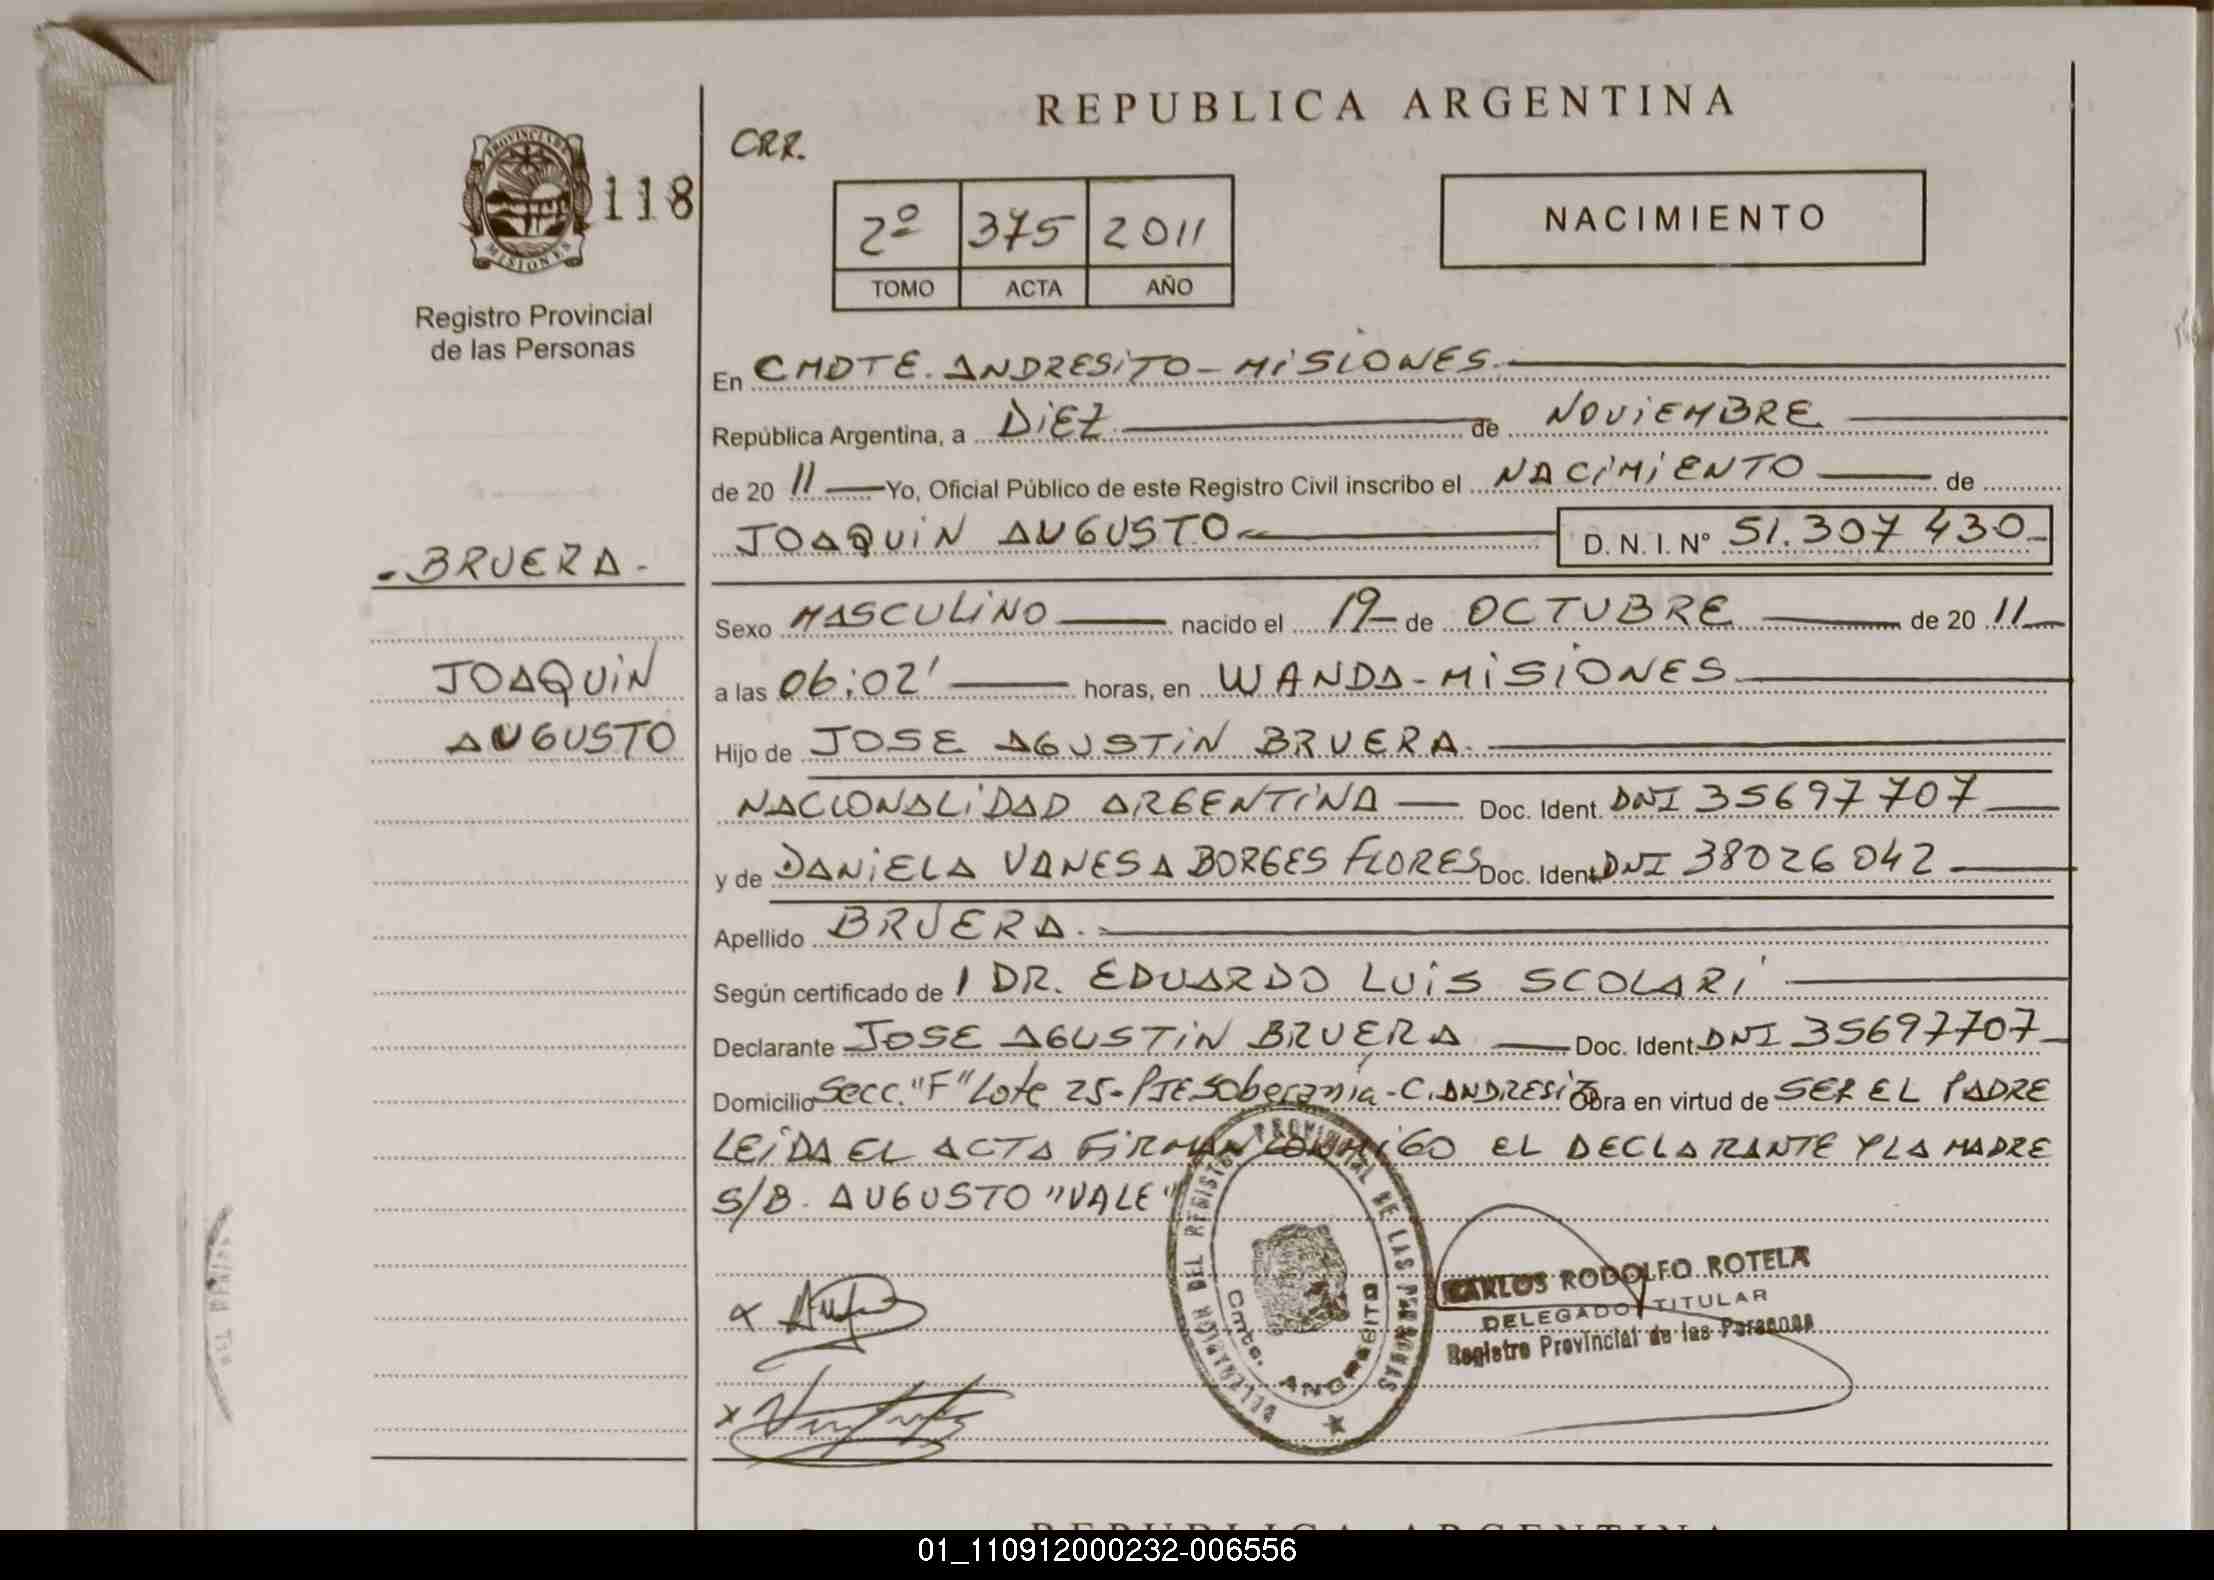 REPUBLICA ARGENTINA
CRR.
PROVINCIA DE
MISIONES
118
2º 375 2011
TOMO ACTA AÑO
NACIMIENTO
Registro Provincial
de las Personas
En CMDTE. ANDRESITO - MISIONES.
República Argentina, a DIEZ de NOVIEMBRE
de 20 11 Yo, Oficial Público de este Registro Civil inscribo el NACIMIENTO de
JOAQUIN AUGUSTO D. N. I. Nº 51.307 430
- BRUERA -
JOAQUIN
AUGUSTO
Sexo MASCULINO nacido el 19 de OCTUBRE de 20 11
a las 06:02' horas, en WANDA - MISIONES
Hijo de JOSE AGUSTIN BRUERA.
NACIONALIDAD ARGENTINA Doc. Ident. DNI 35697707
y de DANIELA VANESA BORGES FLORES Doc. Ident. DNI 38026042
Apellido BRUERA.
Según certificado de / DR. EDUARDO LUIS SCOLARI
Declarante JOSE AGUSTIN BRUERA Doc. Ident. DNI 35697707
Domicilio Secc. "F" Lote 25 - PJE Soberania - C. ANDRESITO Obra en virtud de SER EL PADRE
LEIDA EL ACTA FIRMAN CONMIGO EL DECLARANTE Y LA MADRE
S/B. AUGUSTO "VALE"
DELEGACION DEL REGISTRO PROVINCIAL DE LAS PERSONAS
Cmte. ANDRESITO
CARLOS RODOLFO ROTELA
DELEGADO TITULAR
Registro Provincial de las Personas
REPUBLICA ARGENTINA
01_110912000232-006556